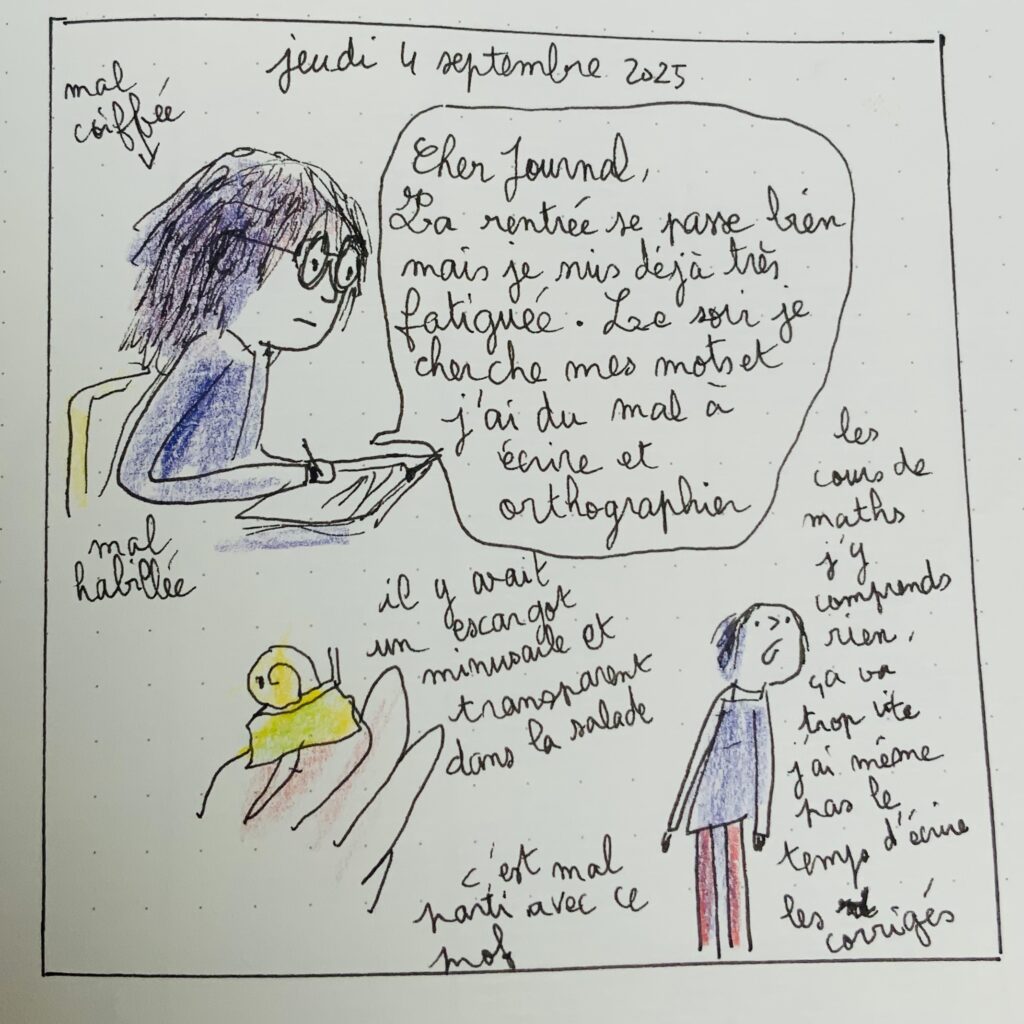 jeudi 4 septembre 2025
mal
coiffée
Cher Journal,
La rentrée se passe bien
mais je suis déjà très
fatiguée. Le soir je
cherche mes mots et
j'ai du mal à
écrire et
orthographier
mal
habillée
il y avait
un escargot
minuscule et
transparent
dans la salade
les
cours de
maths
j'y
comprends
rien,
ça va
trop vite
j'ai même
pas le
temps d'écrire
les corrigés
c'est mal
parti avec ce
prof